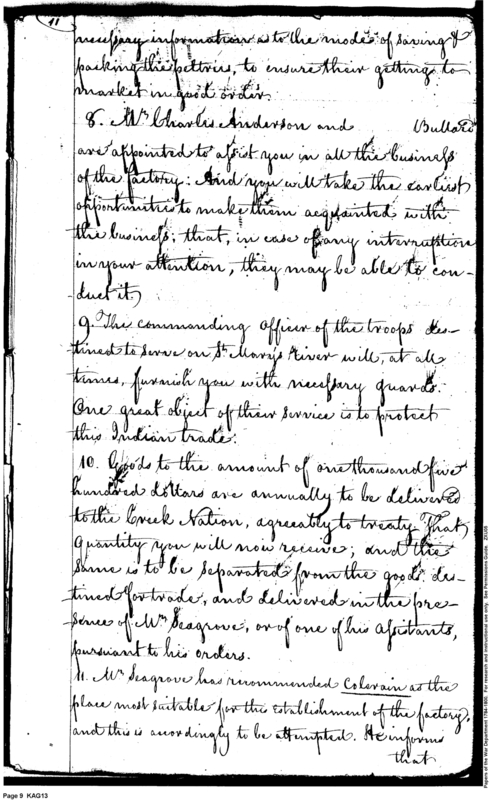 11
necessary information as to the modes of saving &
packing the peltries, to ensure their getting to
market in good order.
8. Mr. Charles Anderson and Bullard
are appointed to assist you in all the business
of the factory: And you will take the earliest
opportunities to make them acquainted with
the business; that, in case of any interruption
in your attention, they may be able to con-
duct it.
9. The commanding Officer of the troops des-
tined to serve on St. Marys River will, at all
times, furnish you with necessary guards.
One great object of their service is to protect
this Indian trade.
10. Goods to the amount of one thousand five
hundred dollars are annually to be delivered
to the Creek Nation, agreeably to treaty. That
quantity you will now receive; and the
same is to be separated from the goods des-
tined for trade, and delivered in the pre-
sence of Mr. Seagrove, or of one of his assistants,
pursuant to his orders.
11. Mr. Seagrove has recommended Colerain as the
place most suitable for the establishment of the factory,
and this is accordingly to be attempted. He informs
that
Page 9 KAG13
Papers of the War Department 1784-1800. For research and instructional use only. See Permissions Guide. ZIU08